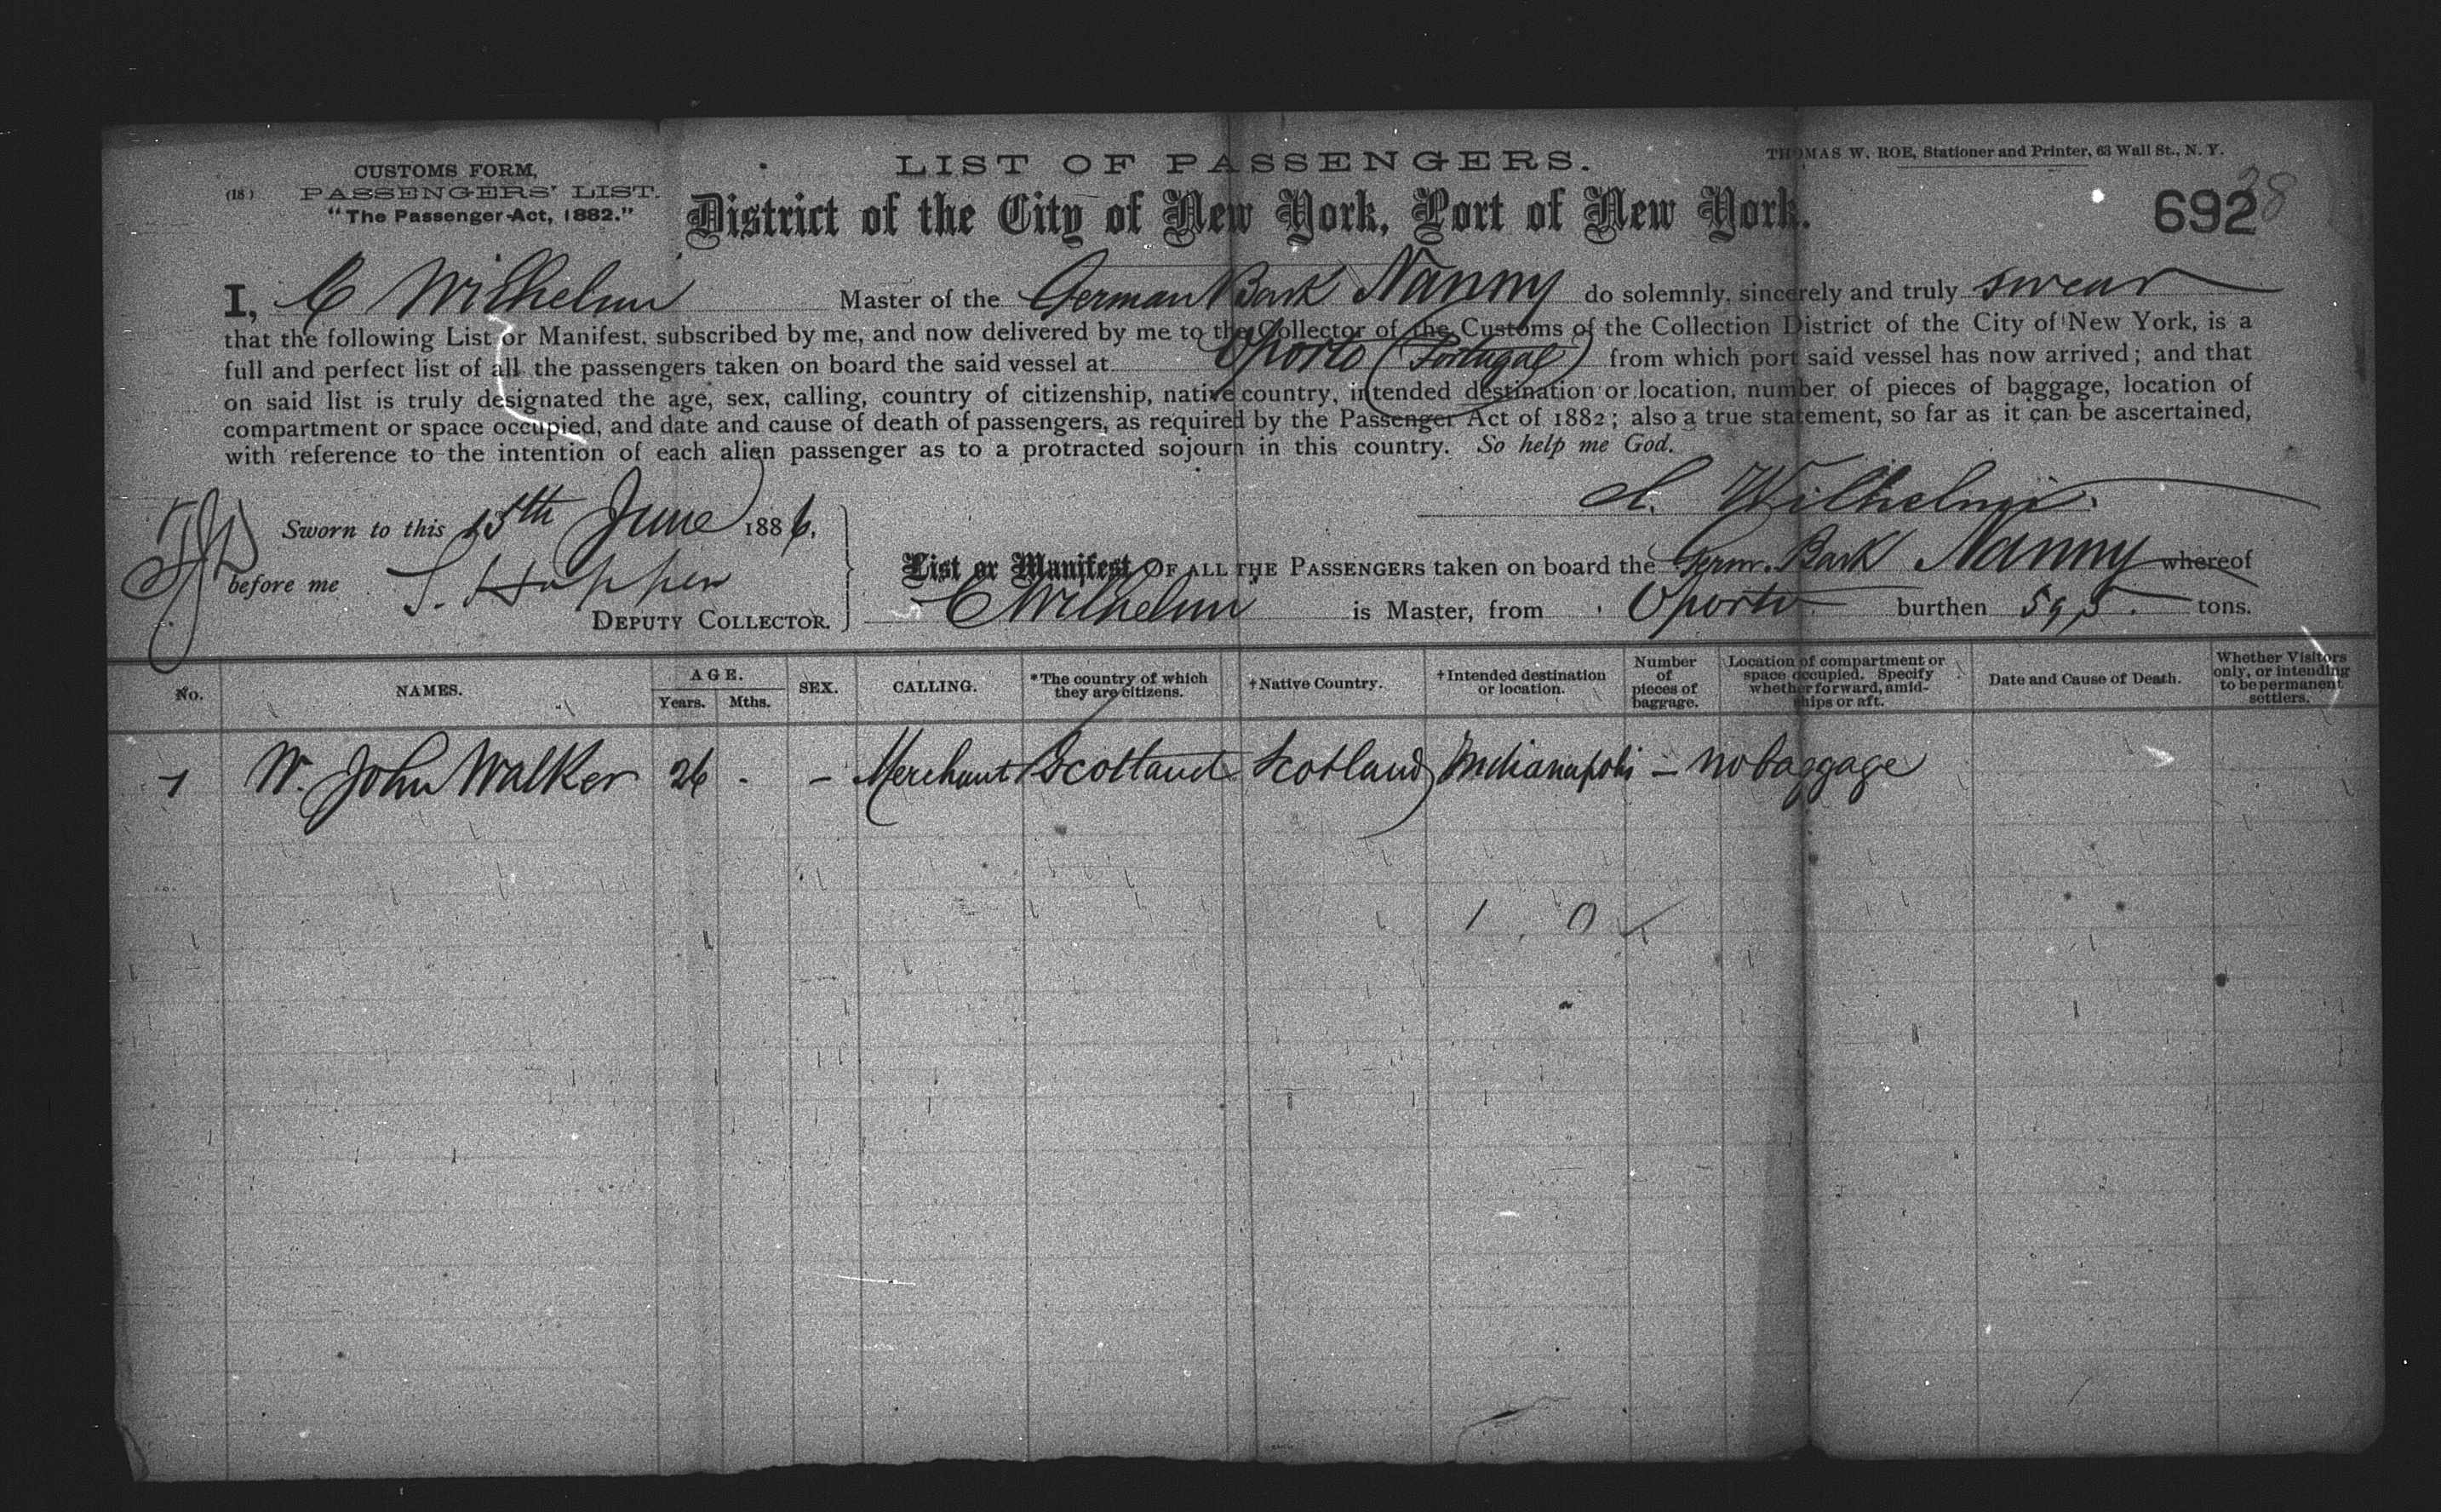 LIST OF PASSENGERS.
THOMAS W. ROE, Stationer and Printer, 63 Wall St., N. Y.
CUSTOMS FORM,
(18) PASSENGERS' LIST.
"The Passenger Act, 1882."
District of the City of New York, Port of New York.
692
28
I, C Wilhelmi Master of the German Bark Nanny do solemnly, sincerely and truly swear
that the following List or Manifest, subscribed by me, and now delivered by me to the Collector of the Customs of the Collection District of the City of New York, is a
full and perfect list of all the passengers taken on board the said vessel at Oporto (Portugal) from which port said vessel has now arrived; and that
on said list is truly designated the age, sex, calling, country of citizenship, native country, intended destination or location, number of pieces of baggage, location of
compartment or space occupied, and date and cause of death of passengers, as required by the Passenger Act of 1882; also a true statement, so far as it can be ascertained,
with reference to the intention of each alien passenger as to a protracted sojourn in this country. So help me God.
C. Wilhelmi.
Sworn to this 15th June 1886,
before me
DEPUTY COLLECTOR.
List or Manifest OF ALL THE PASSENGERS taken on board the Germ. Bark Nanny whereof
C Wilhelmi is Master, from Oporto burthen 595. tons.
No. NAMES. AGE. Years. Mths. SEX. CALLING. *The country of which they are citizens. †Native Country. †Intended destination or location. Number of pieces of baggage. Location of compartment or space occupied. Specify whether forward, amidships or aft. Date and Cause of Death. Whether Visitors only, or intending to be permanent settlers.
1 W. John Walker 26 . - Merchant Scotland Scotland Indianapolis - no baggage
1 . 0